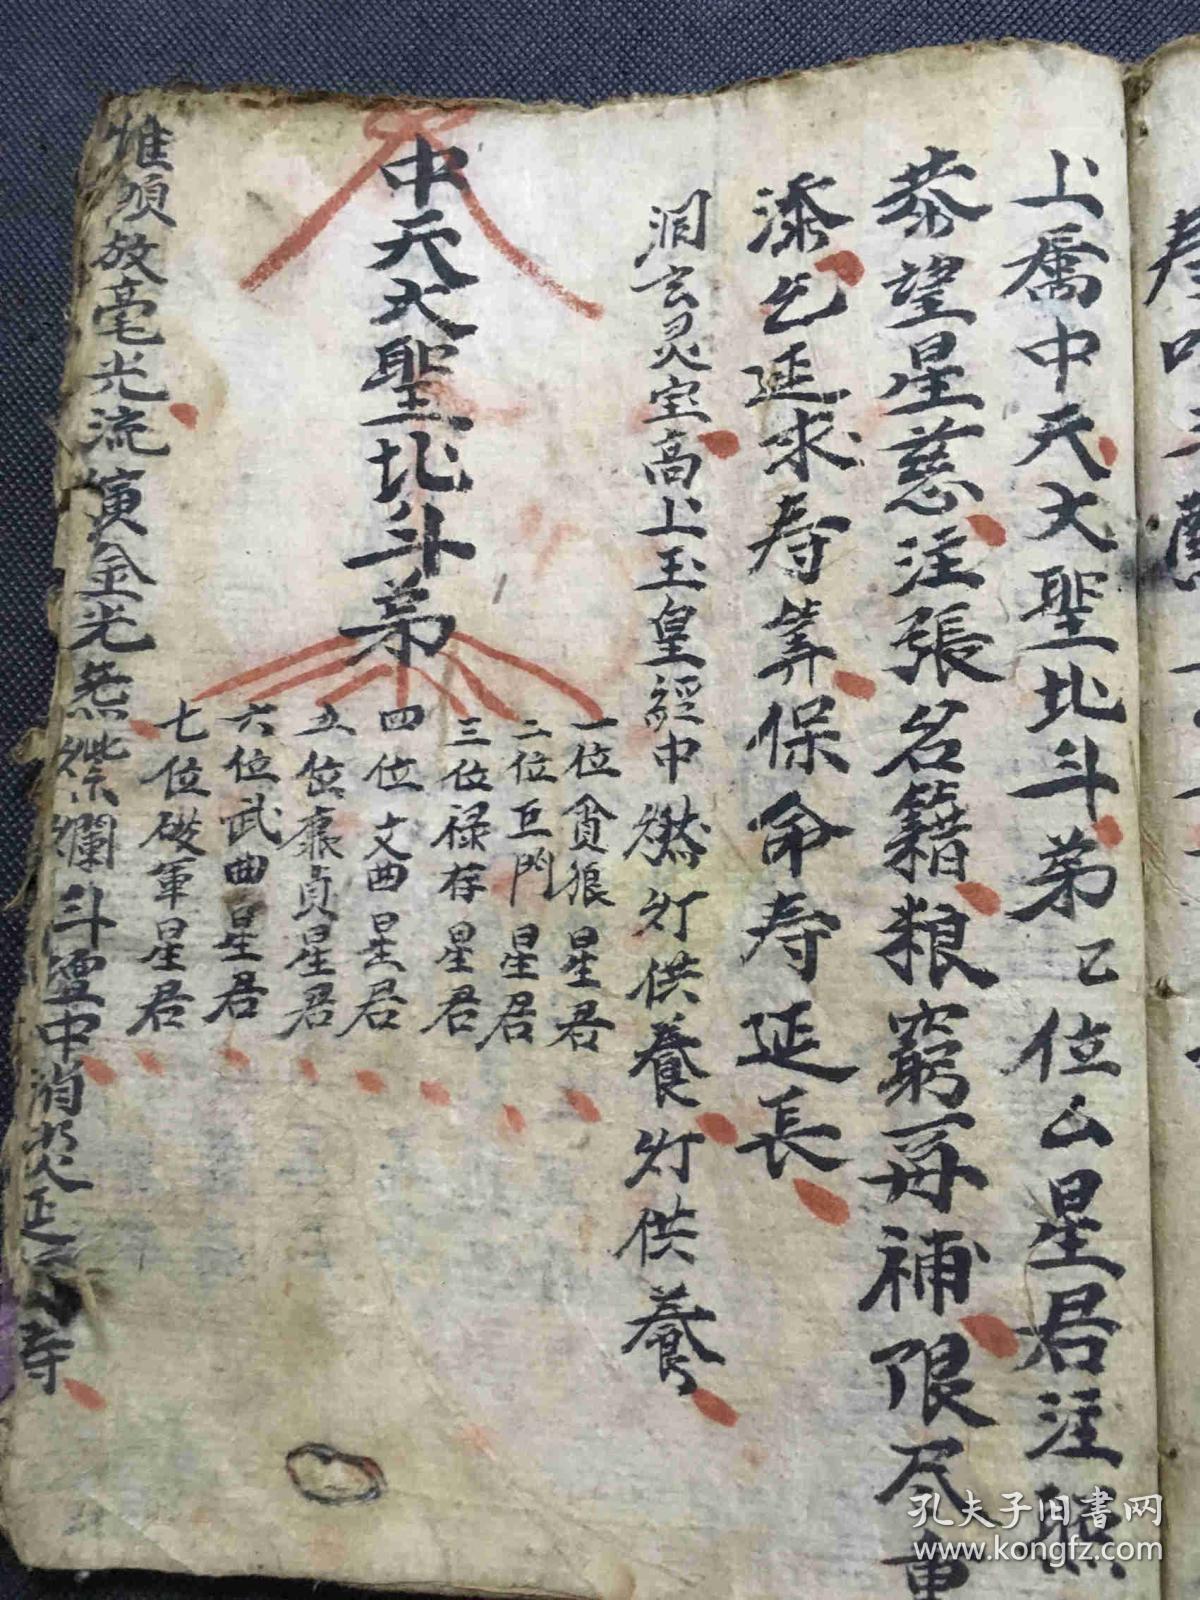 上喬中天大聖北斗第乙位厶星君注照
恭望星慈注張名籍粮窮再補限尽重
添乞延求寿筭保命寿延長
洞玄灵宝高上玉皇經中燃灯供養灯供養
中天大聖北斗第
一位貪狼星君
二位巨門星君
三位禄存星君
四位文曲星君
五位廉貞星君
六位武曲星君
七位破軍星君
惟願放毫光流演金光無燦爛斗壇中消災延寿
孔夫子旧書网
www.kongfz.com